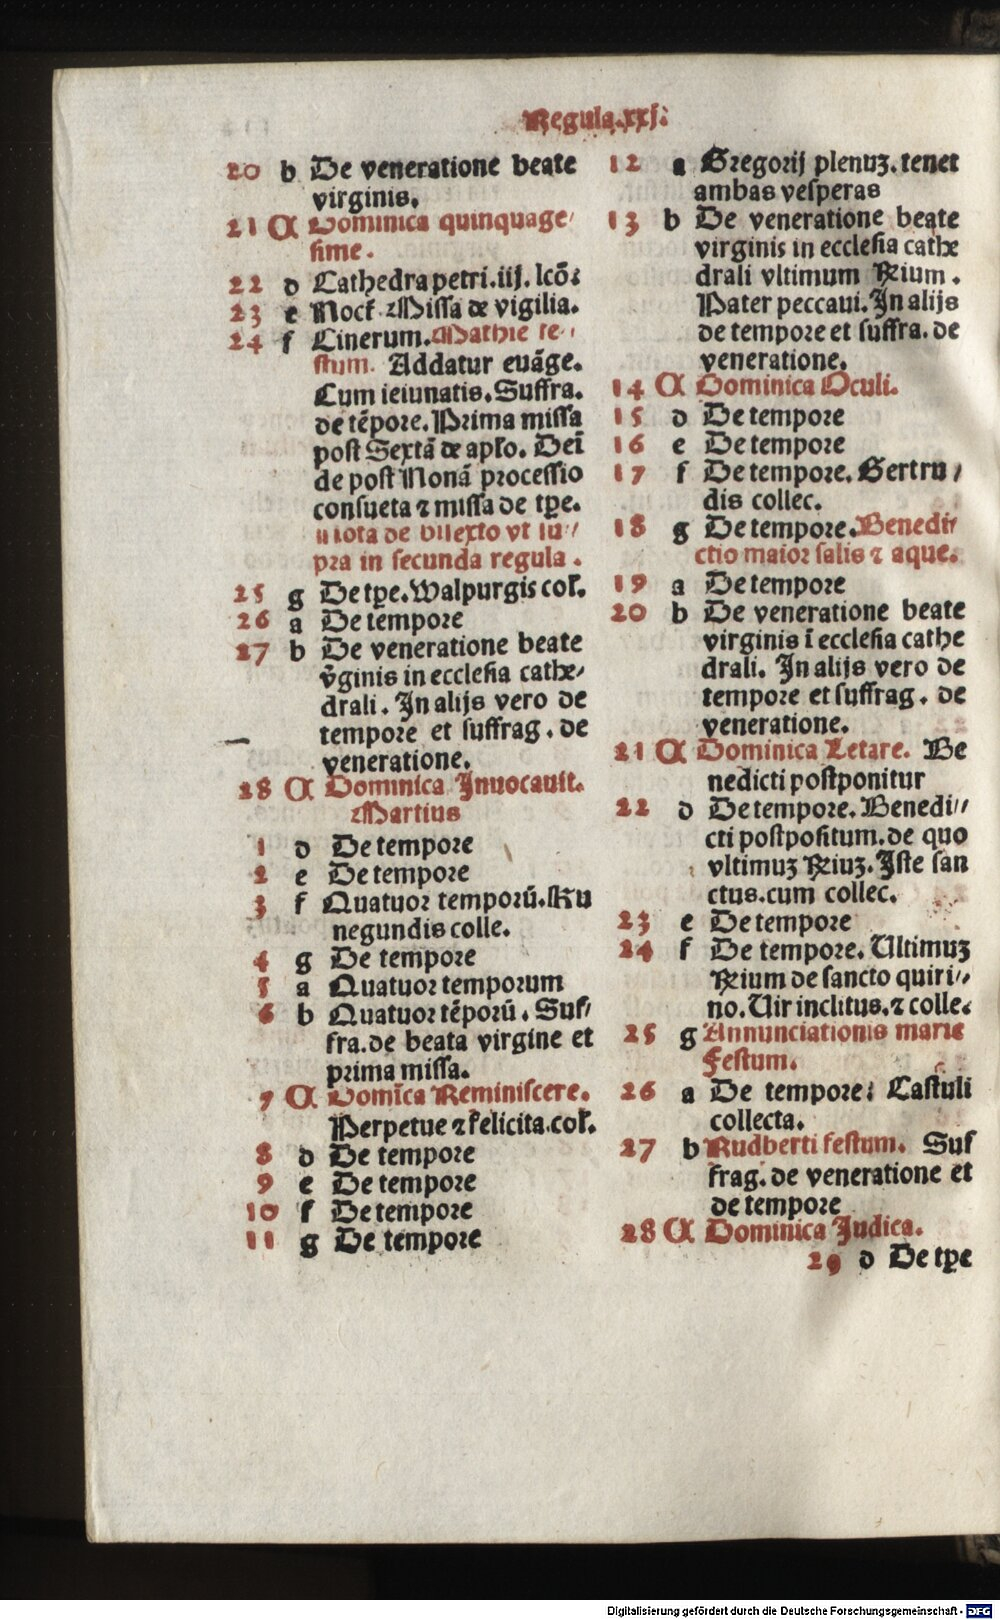 Regula.xxj.
20 b De veneratione beate
virginis.
21 A Dominica quinquage/
sime.
22 d Cathedra petri.iij. lcõ:
23 e Noct̃. Missa de vigilia.
24 f Cinerum. Mathie fe-
stum. Addatur evãge.
Cum ieiunatis. Suffra.
de tẽpore. Prima missa
post Sextã de aplo. Deĩ
de post Nonã processio
consueta ⁊ missa de tpe.
Nota de bisexto vt su/
pra in secunda regula.
25 g De tpe. Walpurgis col.
26 a De tempore
27 b De veneratione beate
v̄ginis in ecclesia cathe/
drali. In alijs vero de
tempore et suffrag. de
veneratione.
28 A Dominica Invocavit.
Martius
1 d De tempore
2 e De tempore
3 f Quatuor temporũ. Ku
negundis colle.
4 g De tempore
5 a Quatuor temporum
6 b Quatuor tẽporũ. Suf/
fra. de beata virgine et
prima missa.
7 A Domĩca Reminiscere.
Perpetue ⁊ felicita. col.
8 d De tempore
9 e De tempore
10 f De tempore
11 g De tempore
12 a Gregorij plenuꝫ. tenet
ambas vesperas
13 b De veneratione beate
virginis in ecclesia cathe
drali vltimum Rium.
Pater peccavi. In alijs
de tempore et suffra. de
veneratione.
14 A Dominica Oculi.
15 d De tempore
16 e De tempore
17 f De tempore. Gertru/
dis collec.
18 g De tempore. Benedi/
ctio maior salis ⁊ aque.
19 a De tempore
20 b De veneratione beate
virginis ĩ ecclesia cathe
drali. In alijs vero de
tempore et suffrag. de
veneratione.
21 A Dominica Letare. Be
nedicti postponitur
22 d De tempore. Benedi//
cti postpositum. de quo
vltimuꝫ Riuꝫ. Iste san
ctus. cum collec.
23 e De tempore
24 f De tempore. Ultimuꝫ
Rium de sancto quiri//
no. Uir inclitus. ⁊ colle.
25 g Annunciationis marie
festum.
26 a De tempore: Castuli
collecta.
27 b Rudberti festum. Suf
frag. de veneratione et
de tempore
28 A Dominica Judica.
29 d De tpe
Digitalisierung gefördert durch die Deutsche Forschungsgemeinschaft - DFG